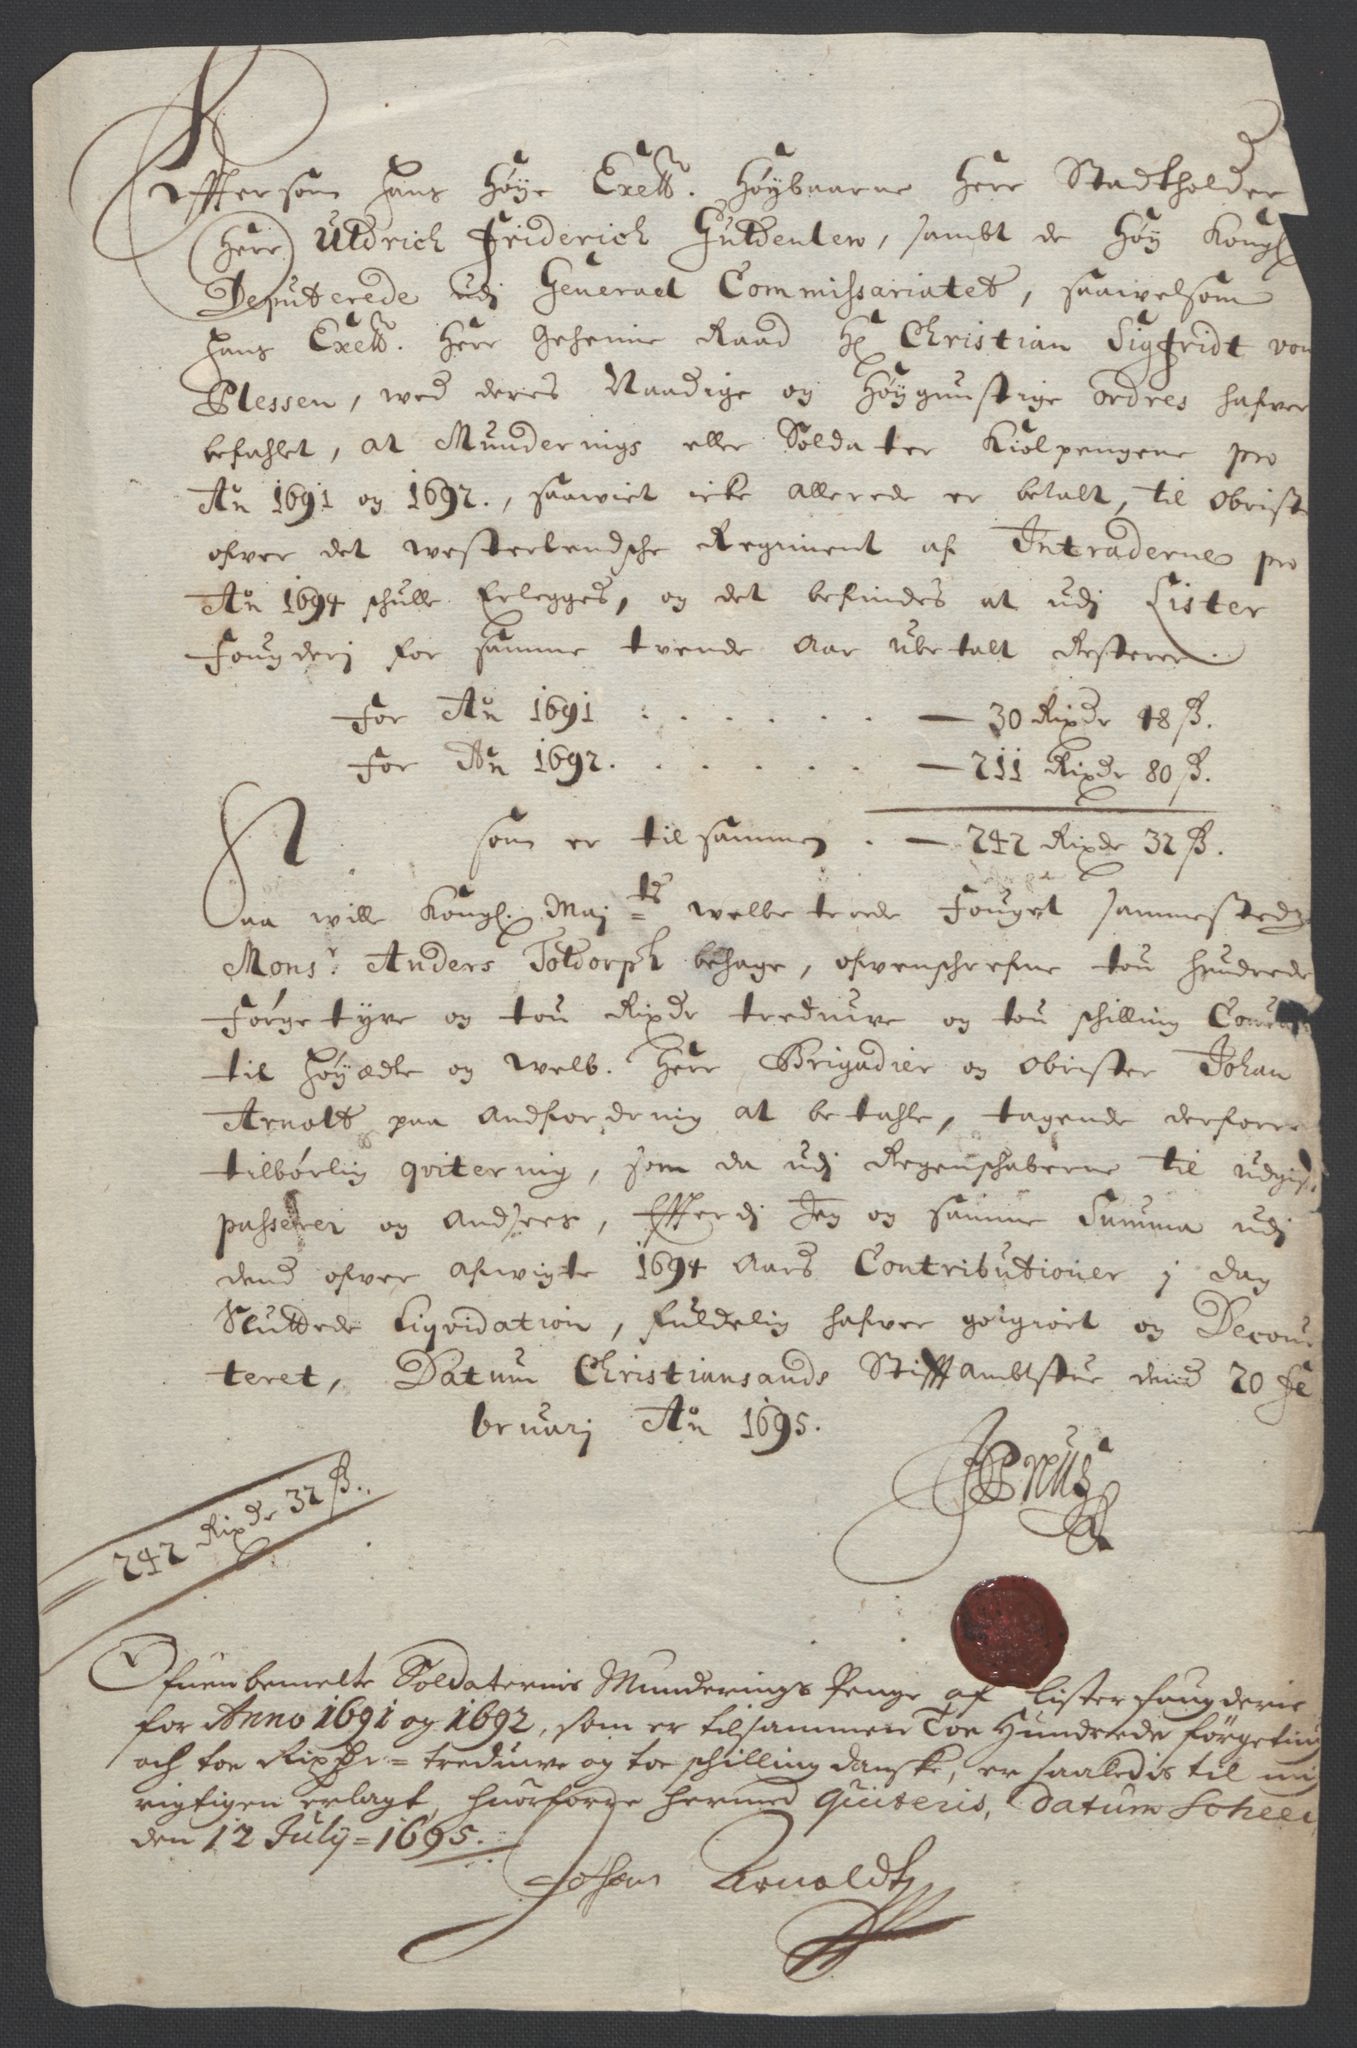 Effter som Hans Høye Excell. Høybaarne Herr Stadtholder
Herr Uldrich Friderich Güldenlew, sambt de Høy Kongl
Deputerede udj General Commissariatet, saawelsom
Hans Excell. Herr Geheime Raad Hr Christian Sigfridt von
Plessen, wed deres Naadige og Høygunstige ordres hafver
befahlet, at Munderings eller Soldater Kiolpengene pro
An 1691 og 1692., saawiet icke allerede er betalt, til Obrist
ofver det westerlendsche Regiment af Intraderne pro
An 1694 schulle Erlegges, og det befindes at udj Lister
Fougderj for samme tvende Aar ubetalt Resterer.
For An 1691 . . . . . . — 30 Rixdr 48 ß.
For An 1692. . . . . . — 211 Rixdr 80 ß.
som er tilsammen . — 242 Rixdr 32 ß.
Saa wille Kongl. Maj ts welbetrode Fouget sammesteds
Monsr. Anders Toldorph behage, ofvenschrefne tou hundrede
Førgetyve og tou Rixdr trediuve og tou schilling
til Høyædle og welb. Herr Brigadier og Obrister Johan
Arnolt paa Andfordring at betahle, tagende derforre
tilbørlig qvitering, som da udj Regenschaberne til udgift
passerer og Andsees, Efterdj Jeg og samme Summa udj
dend ofver afwigte 1694 Aars Contributioner j dag
Sluttede Liqvidation, fuldelig hafver goigiort og Decour
teret, Datum Christiansands Stifft Ambtstue dend 20 Fe
bruarj An 1695.
242 Rixdr 32 ß.
Ofuenbemelte Soldaternis Munderings Penge af Lister fougderie
for Anno 1691 og 1692, som er tilsammen Toe Hundrede førgetiug
och toe Rixdr = trediuve og toe schilling danske, er saaledis til mig
rigtigen erlagt, huorforre hermed Quiteris, Datum
den 12 July = 1695.
Johan Arnoldt